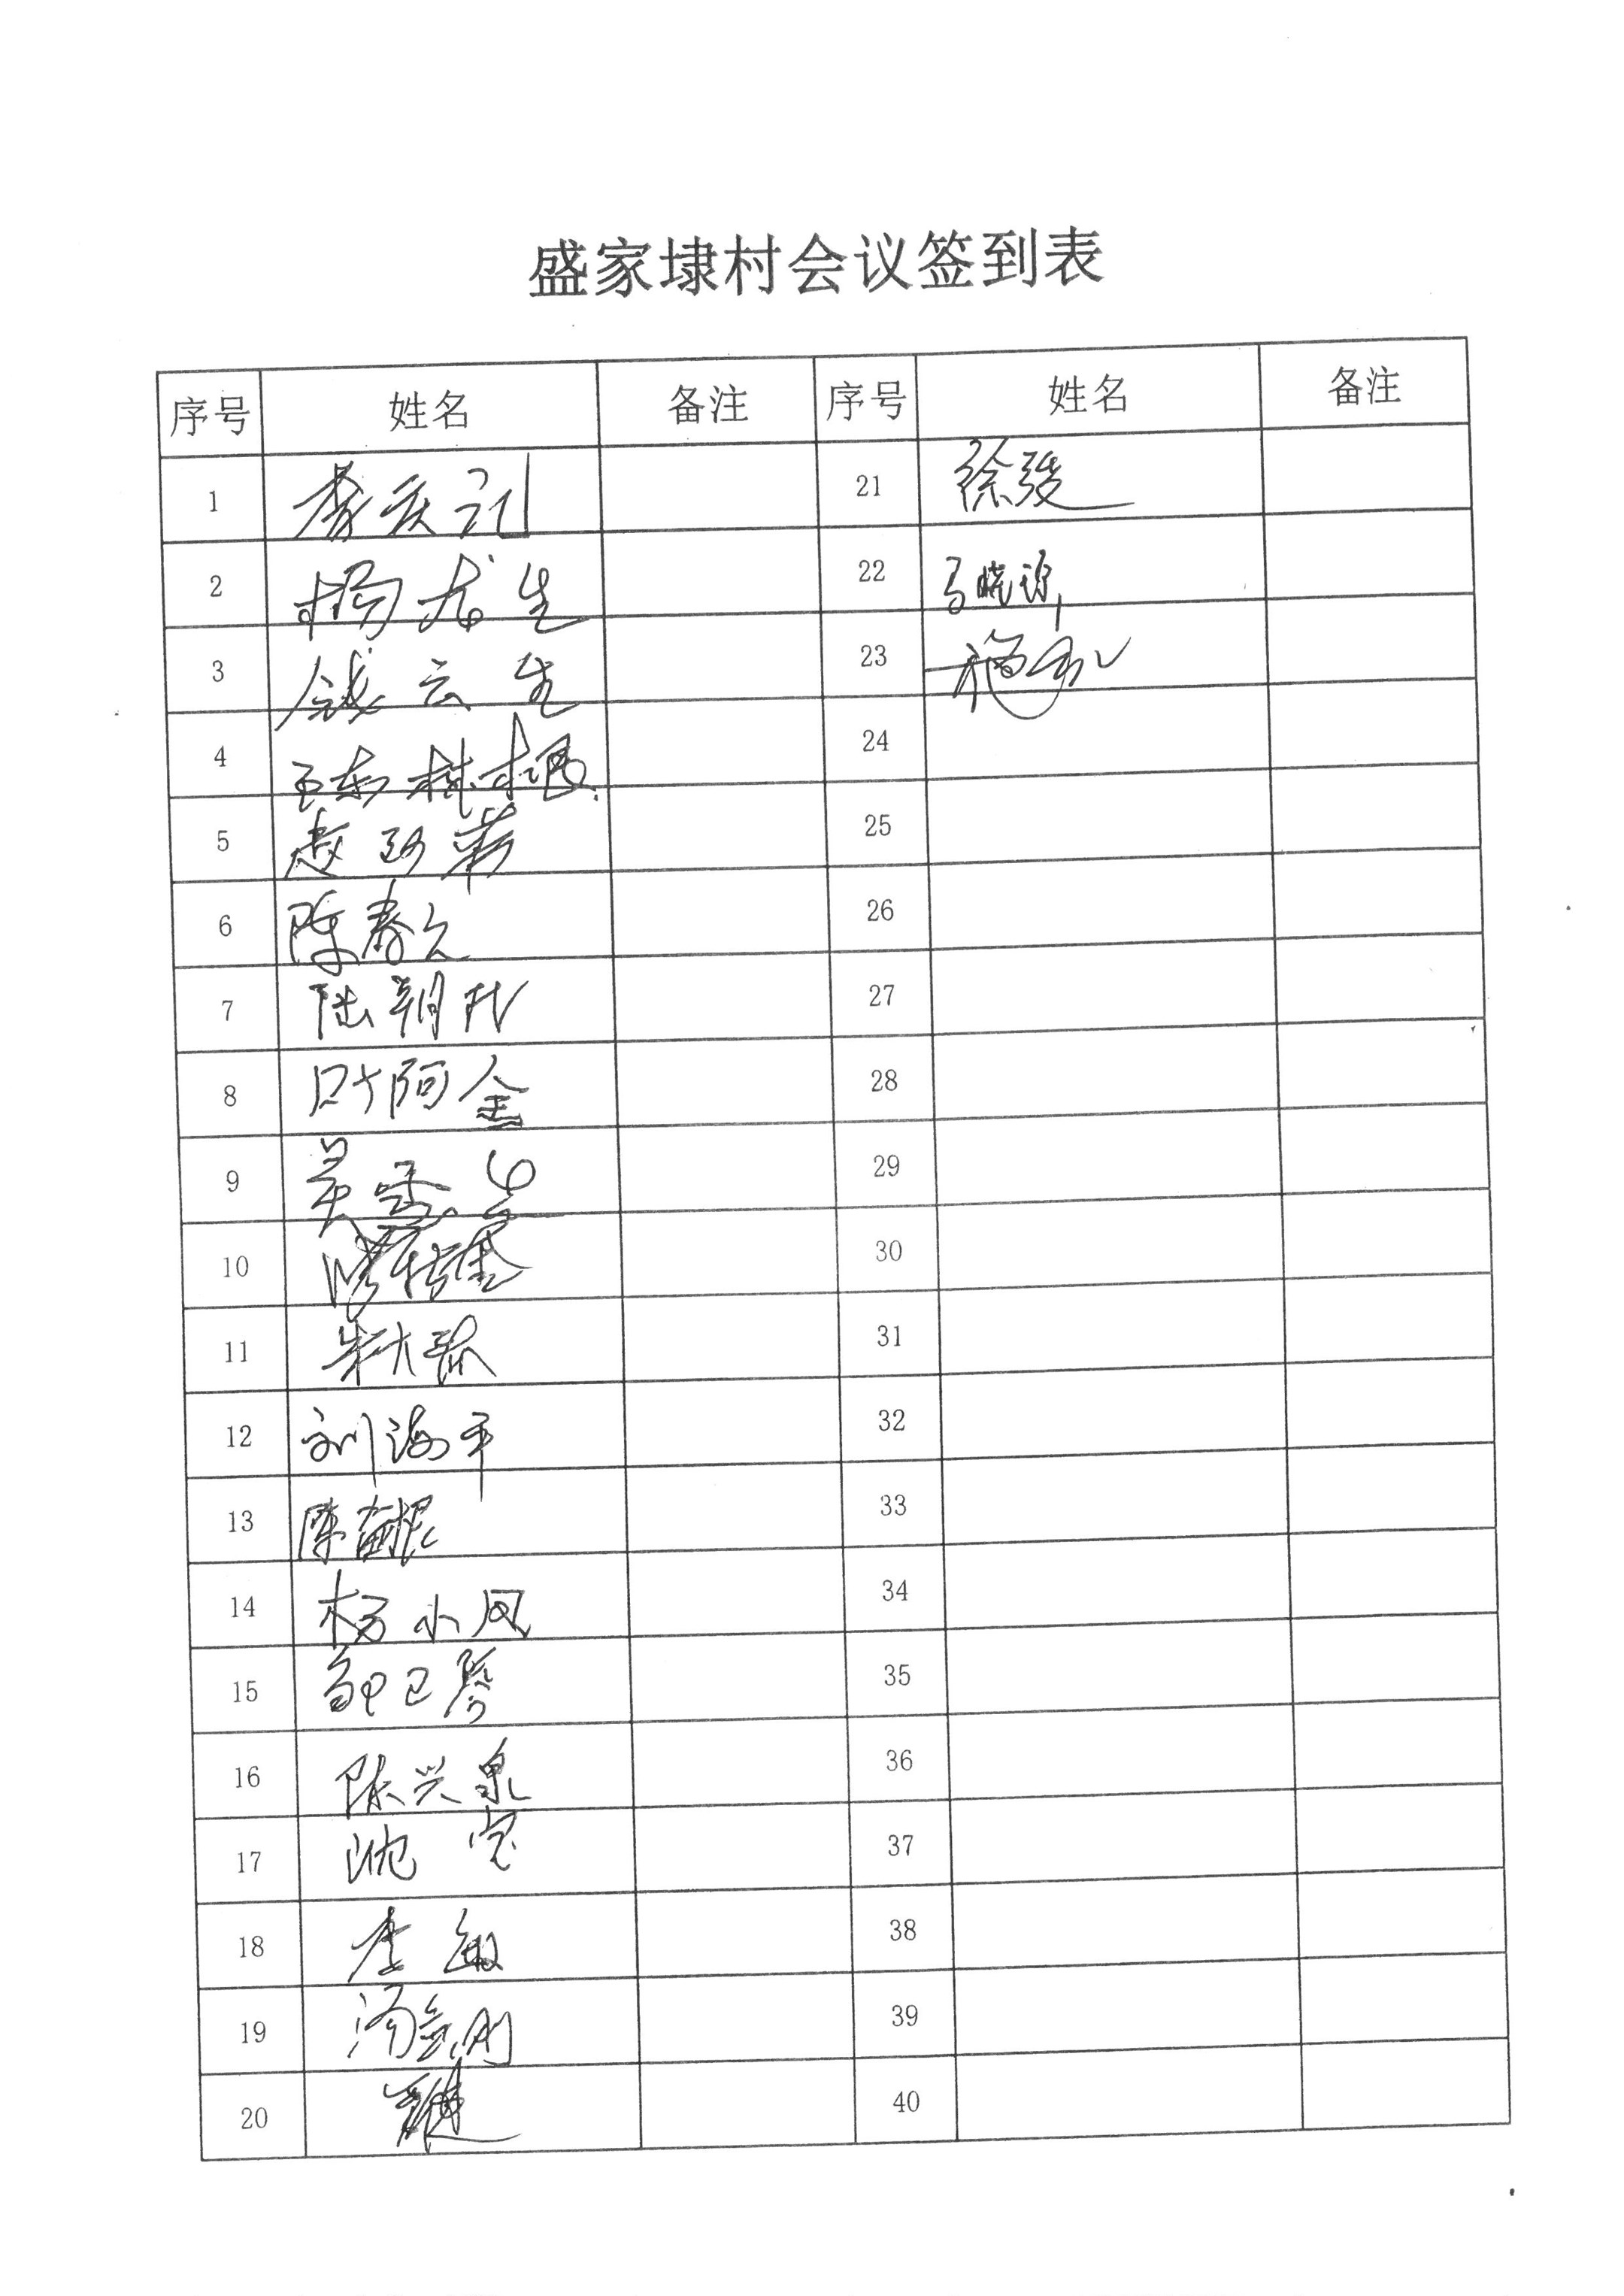 盛家埭村会议签到表
序号 姓名 备注 序号 姓名 备注
1 21 徐骏
2 杨龙生 22 马晓
3 钱云生 23 施
4 陈林根 24
5 25
6 陈春 26
7 陆朝 27
8 叶阿金 28
9 吴雪 29
10 30
11 朱大 31
12 刘海平 32
13 陈 根 33
14 杨小凤 34
15 邹卫琴 35
16 陈兴泉 36
17 沈宝 37
18 李敏 38
19 汤 刚 39
20 40